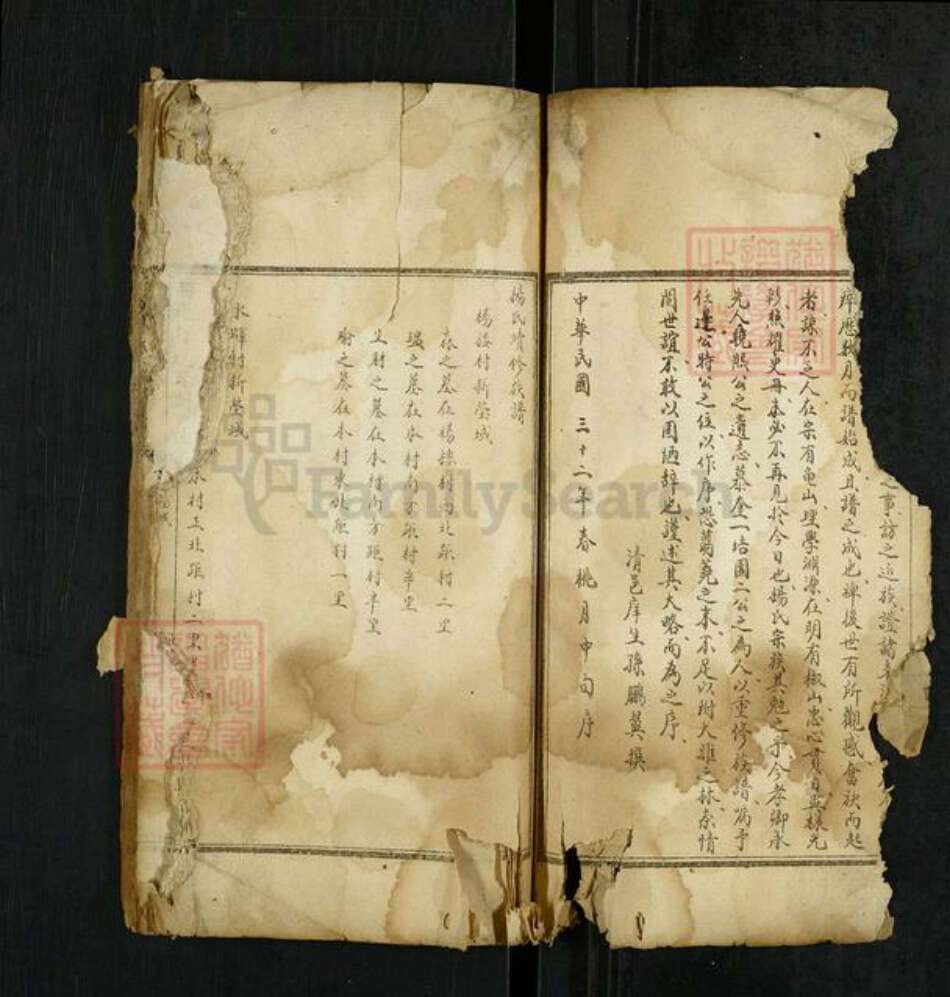 之事訪之近族證諸
牌歷數月而譜始成且譜之成也裨後世有所觀感奮袂而起
者諒不乏人在宋有龜山理學淵源在明有椒山忠心貫日其採尤
彩照耀史冊未必不再見於今日也楊氏宗族其勉之乎今孝卿永
先人曉熙公之遺志慕奎一培園二公之為人以重修族譜囑予
任逢公特公之位以作序恐蒭蕘之本不足以附大雅之林奈情
關世誼不敢以固陋辭也謹述其大略而為之序
清邑庠生孫鵬翼撰
中華民國三十二年春桃月中旬序
楊氏續修族譜
楊樓村新塋域
之墓在楊樓村南北距村二里
之墓在本村南方距村半里
生財之墓在本村南方距村半里
之墓在本村東北距村一里
村新塋域
本村正北距村二里
FamilySearch